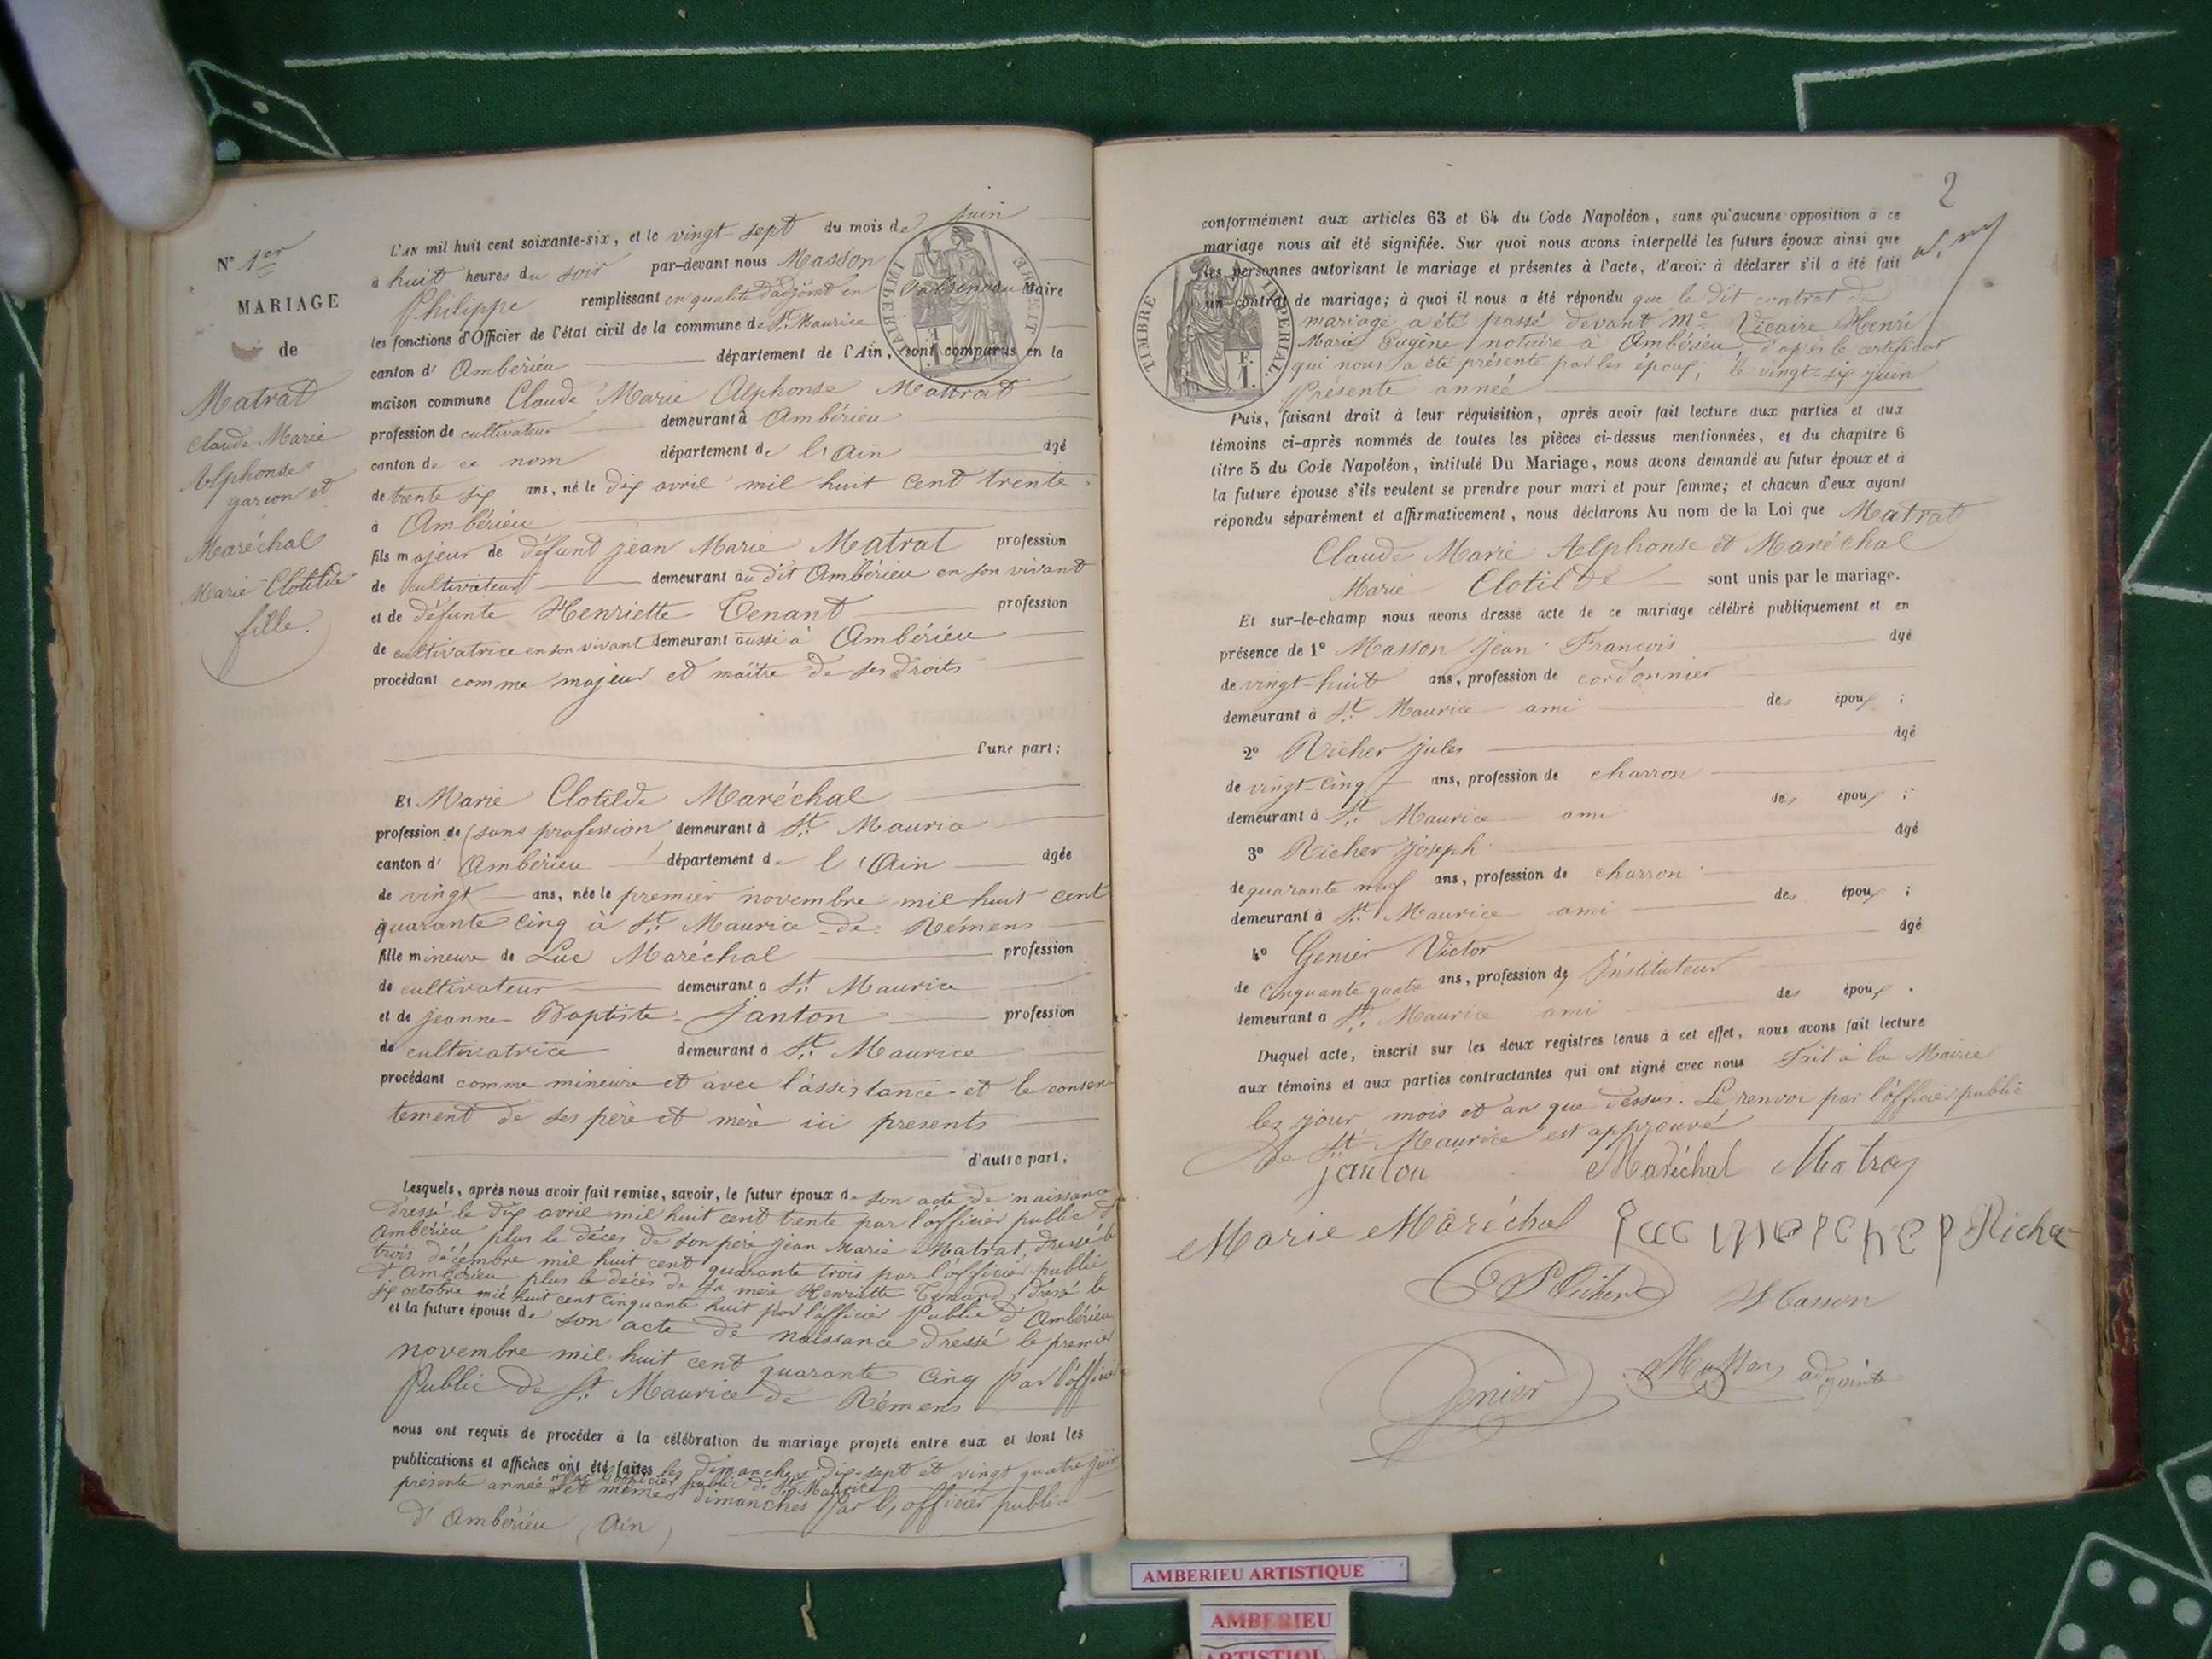 N° 1er
MARIAGE
de
Matrat
Claude Marie
Alphonse
garçon et
Maréchal
Marie Clotilde
fille.
L'AN mil huit cent soixante-six, et le vingt-sept du mois de Juin
à huit heures du soir par-devant nous Masson
Philippe remplissant en qualité d'adjoint en l'absence du Maire
les fonctions d'Officier de l'état civil de la commune de St. Maurice
canton d' Ambérieu département de l'Ain, sont comparus en la
maison commune Claude Marie Alphonse Mattrat
profession de cultivateur demeurant à Ambérieu
canton de ce nom département de l'Ain âgé
de trente six ans, né le dix avril mil huit cent trente
à Ambérieu
fils majeur de défunt jean Marie Matrat profession
de cultivateur demeurant au dit Ambérieu en son vivant
et de défunte Henriette Tenant profession
de cultivatrice en son vivant demeurant aussi à Ambérieu
procédant comme majeur et maître de ses droits
d'une part;
Et Marie Clotilde Maréchal
profession de (sans profession) demeurant à St. Maurice
canton d' Ambérieu département de l'Ain âgée
de vingt ans, née le premier novembre mil huit cent
quarante cinq à St. Maurice de Rémens
fille mineure de Luc Maréchal profession
de cultivateur demeurant à St. Maurice
et de jeanne Baptiste Janton profession
de cultivatrice demeurant à St. Maurice
procédant comme mineure et avec l'assistance et le consen
tement de ses père et mère ici presents
d'autre part;
Lesquels, après nous avoir fait remise, savoir, le futur époux de son acte de naissance
dressé le dix avril mil huit cent trente par l'officier public d'
Ambérieu, plus le décès de son père jean Marie Matrat, dressé le
trois décembre mil huit cent quarante trois par l'officier public
d'Ambérieu plus le décès de sa mère Henriette Tenand, dressé le
six octobre mil huit cent cinquante huit par l'officier Public d'Ambérieu
et la future épouse de son acte de naissance dressé le premier
novembre mil huit cent quarante cinq par l'officier
Public de St. Maurice de Rémens
nous ont requis de procéder à la célébration du mariage projeté entre eux et dont les
publications et affiches ont été faites les dimanches dix-sept et vingt quatre juin
par l'officier public de St. Maurice
présente année et mêmes dimanches par l'officier public
d'Ambérieu (Ain)
2
conformément aux articles 63 et 64 du Code Napoléon, sans qu'aucune opposition à ce
mariage nous ait été signifiée. Sur quoi nous avons interpellé les futurs époux ainsi que
les personnes autorisant le mariage et présentes à l'acte, d'avoir à déclarer s'il a été fait
un contrat de mariage; à quoi il nous a été répondu que le dit contrat de
mariage a été passé devant Me Vicaire Henri
Marie Eugène notaire à Ambérieu, d'après le certificat
qui nous a été présenté par les époux, le vingt-six juin
Présente année
TIMBRE IMPERIAL
F.
1.
Puis, faisant droit à leur réquisition, après avoir fait lecture aux parties et aux
témoins ci-après nommés de toutes les pièces ci-dessus mentionnées, et du chapitre 6
titre 5 du Code Napoléon, intitulé Du Mariage, nous avons demandé au futur époux et à
la future épouse s'ils veulent se prendre pour mari et pour femme; et chacun d'eux ayant
répondu séparément et affirmativement, nous déclarons Au nom de la Loi que Matrat
Claude Marie Alphonse et Maréchal
Marie Clotilde sont unis par le mariage.
Et sur-le-champ nous avons dressé acte de ce mariage célébré publiquement et en
présence de 1° Masson Jean François âgé
de vingt-huit ans, profession de cordonnier
demeurant à St. Maurice ami des époux;
2° Richer jules âgé
de vingt-cinq ans, profession de charron
demeurant à St. Maurice ami des époux;
3° Richer joseph âgé
de quarante neuf ans, profession de charron
demeurant à St. Maurice ami des époux;
4° Genier Victor âgé
de cinquante quatre ans, profession de Instituteur
demeurant à St. Maurice ami des époux.
Duquel acte, inscrit sur les deux registres tenus à cet effet, nous avons fait lecture
aux témoins et aux parties contractantes qui ont signé avec nous Fait à la Mairie
les jour mois et an que dessus. Le renvoi par l'officier public
de St. Maurice est approuvé
janton Maréchal Matray
Marie Maréchal Richer
Masson
Genier Masson adjoint
AMBERIEU ARTISTIQUE
AMBERIEU
ARTISTIQUE